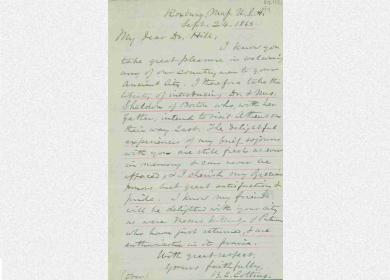 Roxbury, Mass. U.S.A.
Sept. 24. 186
My Dear Dr. Hill,
I know you
take great pleasure in welcoming
any of our countrymen to your
Ancient City. I therefore take the
liberty of introducing Dr. & Mrs.
Sheldon of Boston who, with her
father, intend to visit Athens on
their way East. The delightful
experiences of my brief sojourn
with you are still fresh as ever
in memory & can never be
effaced, & I cherish my Grecian
with great satisfaction &
pride. I know my friends
will be delighted with your city
as were Messrs
who have just returned, & are
enthusiastic in its praise.
With great respect,
Yours faithfully,
B. E. Cotting.
(Over)